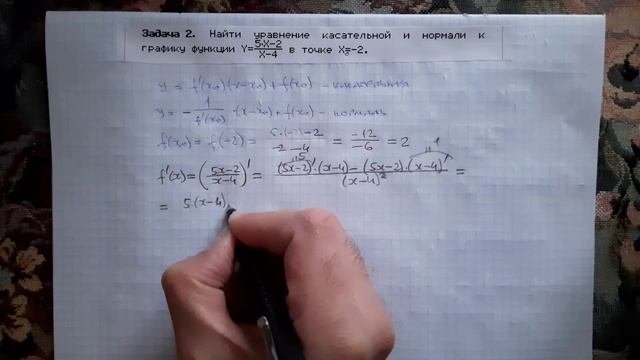 Задача 2. Найти уравнение касательной и нормали к
графику функции Y=(5·X-2)/(X-4) в точке X=-2.
y = f'(x₀)·(x-x₀)+f(x₀) - касательная
y = -1/f'(x₀) ·(x-x₀)+f(x₀) - нормаль
f(x₀) = f(-2) = (5·(-2)-2)/(-2-4) = -12/-6 = 2
f'(x) = ((5x-2)/(x-4))' = ((5x-2)'·(x-4)-(5x-2)·(x-4)')/(x-4)² =
= 5(x-4)